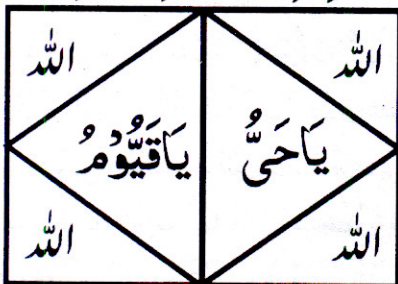 الله الله
يَا حَيُّ يَا قَيُّوْمُ
الله الله